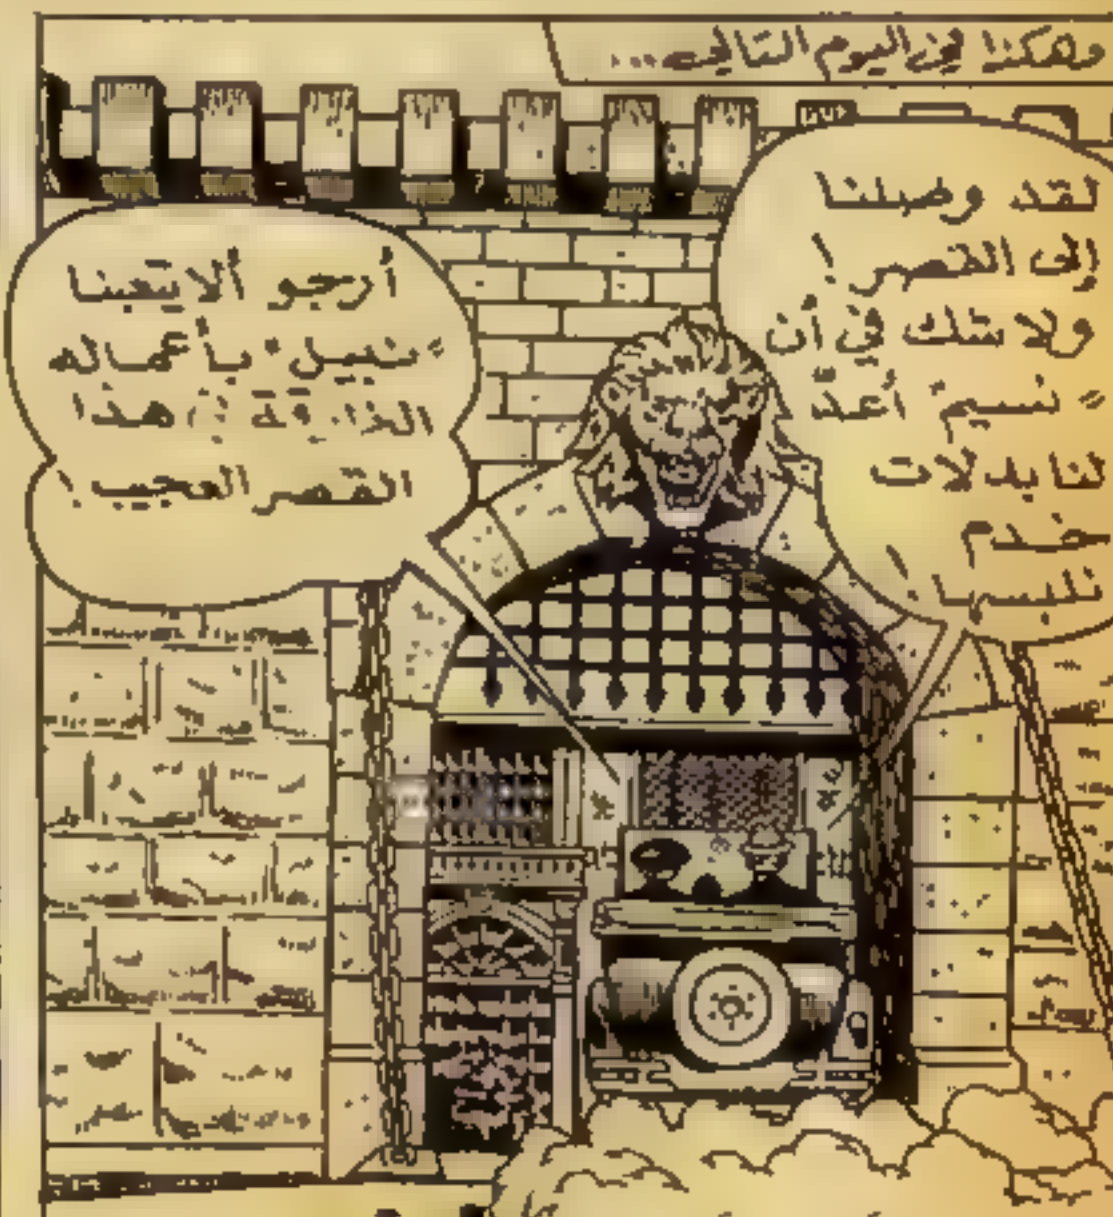 وهكذا في اليوم التالي...
لقد وصلنا
إلى القصر!
ولا شك في أن
"نسيم" أعدّ
لنا بدلات
خدم
نلبسها!
أرجو ألا يتعبنا
"نبيل" بأعماله
هذا
القصر العجيب!